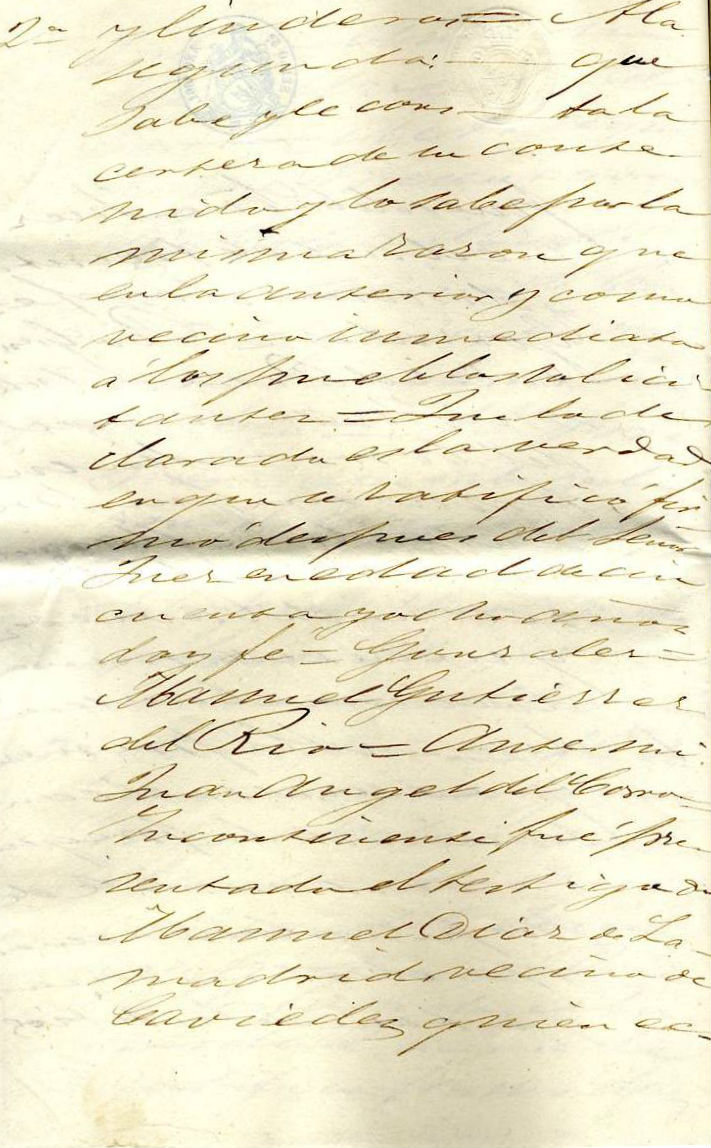 2ª y linderos = A la
segunda: que
Sabe y le cons- ta la
certeza de su conte
nido y lo sabe por la
misma razon que
en la anterior y como
vecino inmediato
a los pueblos solici
tantes = Que lo de
clarado es la verdad
en que se ratificó fir
mó despues del Señor
Juez en edad de cin
cuenta y ocho años
doy fé = Gonzalez =
Manuel Gutierrez
del Rio = Ante mi
Juan Angel del Corro =
Incontinenti fué pre
sentado el testigo Dn
Manuel Diaz de La-
madrid vecino de
Caviedes quien ec-